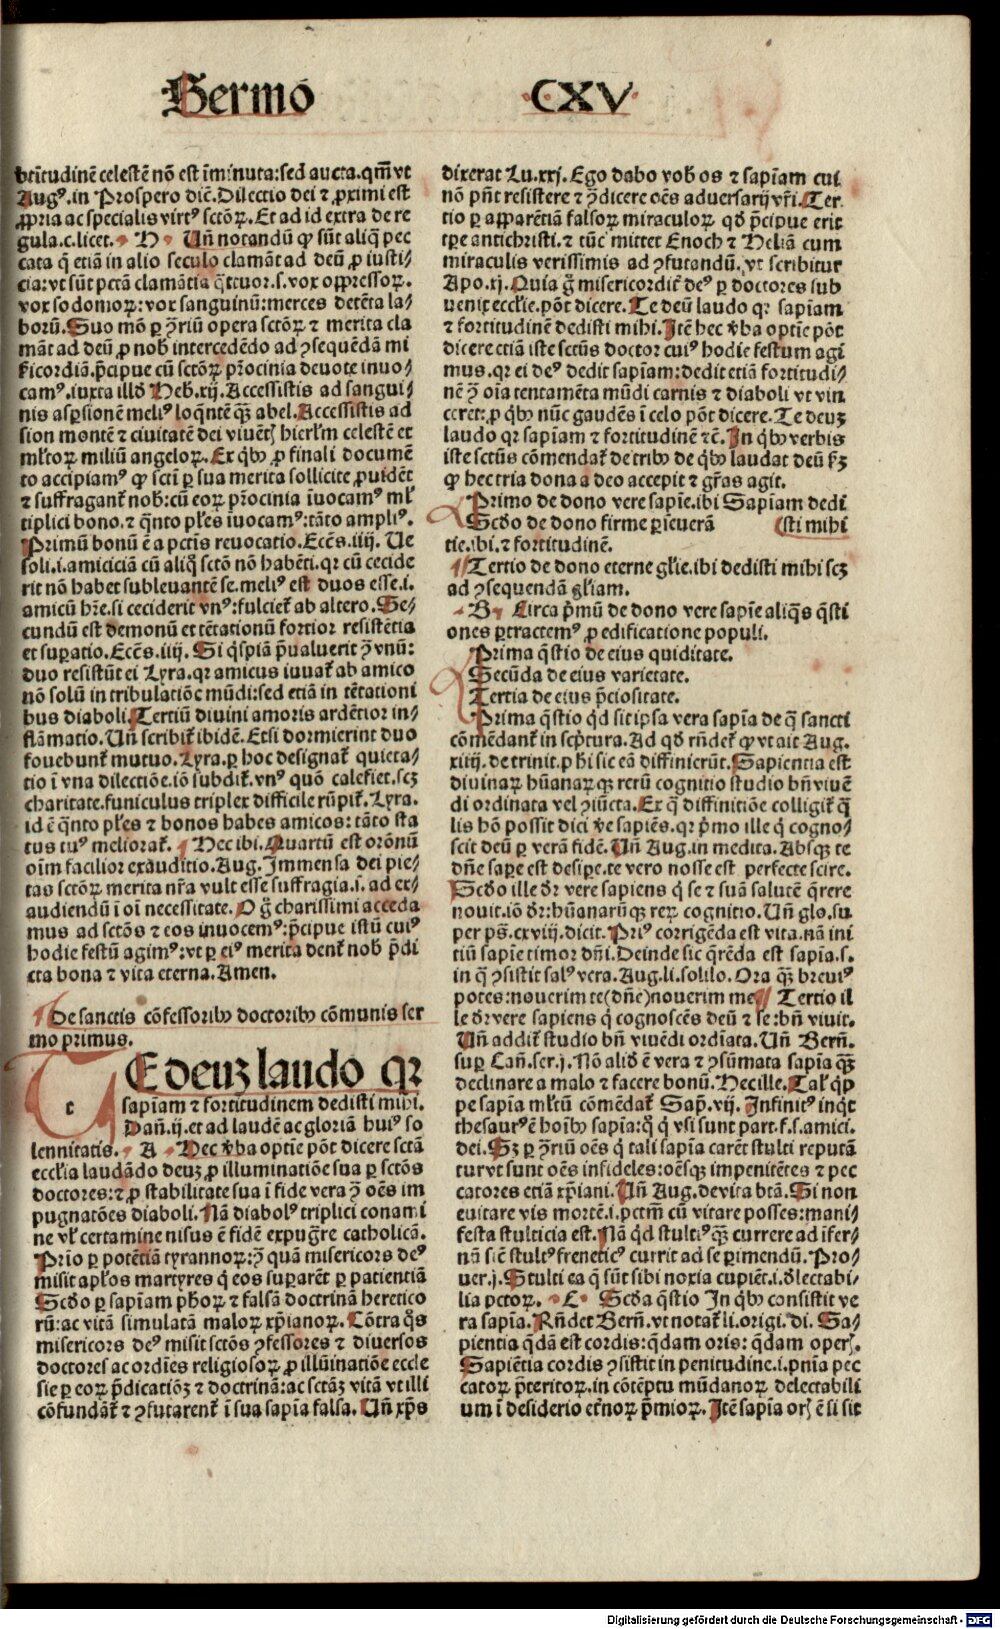 Sermo CXV
btitudinē celestē nō est īminuta: sed aucta. qm̄ vt
Augꝰ. in Prospero dic̄. Dilectio dei ⁊ ꝓximi est
ꝓpria ac specialis virtꝰ sctōꝝ. Et ad id extra de re
gula. c. licet. H Un̄ notandū ꝙ sūt aliq̄ pec
cata q̄ etiā in alio seculo clamāt ad deū ꝓ iusti-
cia: vt sūt pctā clamātia q̄tuor. s. vox oppressoꝝ.
vox sodomoꝝ: vox sanguinū: merces detēta la-
borū. Suo mō ꝑ ꝯriū opera sctōꝝ ⁊ merita cla
māt ad deū ꝓ nob̄ intercedēdo ad ꝯsequēdā mi
sericordiā. p̄cipue cū sctōꝝ pr̄ocinia deuote inuo-
camꝰ. iuxta illd̄ Heb. xij. Accessistis ad sangui-
nis aspersionē meliꝰ loq̄ntē qꝫ abel. Accessistis ad
sion montē ⁊ ciuitatē dei viuētꝭ hierlm̄ celestē et
ml̄toꝝ miliū angeloꝝ. Ex qͥbꝰ ꝓ finali documē
to accipiamꝰ ꝙ scti ꝑ sua merita sollicite ꝓuidēt
⁊ suffragant̄ nob: cū eoꝝ pr̄ocinia īuocamꝰ ml̄
tiplici bono. ⁊ qͣnto pl̄es īuocamꝰ: tāto ampliꝰ.
Primū bonū ē a pctīs reuocatio. Ecēs. iiij. Ue
soli. i. amiciciā cū aliqͦ sctō nō habēti. qr cū cecide
rit nō habet subleuantē se. meliꝰ est duos esse. i.
amicū hr̄e. si ceciderit vnꝰ: fulciet̄ ab altero. Se-
cundū est demonū et tētationū fortior resistētia
et suꝑatio. Ecēs. iiij. Si qͥspiā p̄ualuerit ꝯ vnū:
duo resistūt ei Lyra. qr amicus iuuat̄ ab amico
nō solū in tribulatiōe mūdi: sed etiā in tētationi
bus diaboli. Tertiū diuini amoris ardētior in-
flāmatio. Un̄ scribit̄ ibidē. Etsi dormierint duo
fouebunt̄ mutuo. Lyra. ꝑ hoc designat̄ quieta-
tio ī vna dilectiōe. iō subdit̄. vnꝰ quō calefiet. scꝫ
charitate. funiculus triplex difficile rūpit̄. Lyra.
id ē qͣnto pl̄es ⁊ bonos habes amicos: tāto sta
tus tuꝰ meliorat̄. Hec ibi. Quartū est orōnū
oīm facilior exauditio. Aug. Immensa dei pie-
tas sctōꝝ merita nr̄a vult esse suffragia. i. ad ex-
audiendū ī oī necessitate. O gͦ charissimi acceda
mus ad sctōs ⁊ eos inuocemꝰ: p̄cipue istū cuiꝰ
hodie festū agimꝰ: vt ꝑ eiꝰ merita dent̄ nob p̄di
cta bona ⁊ vita eterna. Amen.
De sanctis cōfessoribꝰ doctoribꝰ cōmunis ser
mo primus.
TE deuꝫ laudo qr
sapiam ⁊ fortitudinem dedisti mihi.
Dan̄. ij. et ad laudē ac gloriā huiꝰ so
lennitatis. A Hec v̄ba optie pōt dicere sctā
eccl̄ia laudādo deuꝫ ꝓ illuminatiōe sua ꝑ sctōs
doctores: ⁊ ꝓ stabilitate sua ī fide vera ꝯ oēs im
pugnatōes diaboli. Nā diabolꝰ triplici conami
ne vl̄ certamine nisus ē fidē expugr̄e catholicā.
Prīo ꝑ potētiā tyrannoꝝ: ꝯ quā misericors deꝰ
misit apl̄os martyres q̄ eos suꝑarēt ꝑ patientiā
Scd̄o ꝑ sapīam ph̄oꝝ ⁊ falsā doctrinā heretico
rū: ac vitā simulatā maloꝝ xp̄ianoꝝ. Cōtra qͦs
misericors deꝰ misit sctōs ꝯfessores ⁊ diuersos
doctores ac ordīes religiosoꝝ ꝓ illūinatiōe eccle
sie ꝑ eoꝝ p̄dicatiōꝫ ⁊ doctrinā: ac sctāꝫ vitā vt illi
cōfundāt̄ ⁊ ꝯfutarent̄ ī sua sapīa falsa. Un̄ xp̄s
dixerat Lu. xxj. Ego dabo vob os ⁊ sapīam cui
nō pn̄t resistere ⁊ ꝯdicere oēs aduersarij vr̄i. Ter
tio ꝑ apparētiā falsoꝝ miraculoꝝ qd̄ p̄cipue erit
tꝑe antichristi. ⁊ tūc mittet Enoch ⁊ Heliā cum
miraculis verissimis ad ꝯfutandū. vt scribitur
Apo. xj. Quia gͦ misericordit̄ deꝰ ꝑ doctores sub
uenit eccl̄ie. pōt dicere. Te deū laudo qr sapīam
⁊ fortitudinē dedisti mihi. Itē hec v̄ba optīe pōt
dicere etiā iste sctūs doctor cuiꝰ hodie festum agi
mus. qr ei deꝰ dedit sapīam: dedit etiā fortitudi-
nē ꝯ oīa tentamēta mūdi carnis ⁊ diaboli vt vin
ceret: ꝓ qͥbꝰ nūc gaudēs ī celo pōt dicere. Te deuꝫ
laudo qr sapīam ⁊ fortitudinē ⁊c̄. In qͥbꝰ verbis
iste sctūs cōmendat̄ de tribꝰ de qͥbꝰ laudat deū scꝫ
ꝙ hec tria dona a deo accepit ⁊ gr̄as agit.
Primo de dono vere sapīe. ibi Sapīam dedi
Scd̄o de dono firme ꝑseuerā (sti mihi
tie. ibi. ⁊ fortitudinē.
Tertio de dono eterne gl̄ie. ibi dedisti mihi scꝫ
ad ꝯsequendā gl̄iam.
B Circa p̄mū de dono vere sapīe aliqͣs q̄sti
ones ꝑtractemꝰ ꝓ edificatione populi.
Prima q̄stio de eius quiditate.
Secūda de eius varietate.
Tertia de eius p̄ciositate.
Prima q̄stio qd̄ sit ipsa vera sapīa de qͣ sancti
cōmēdant̄ in scp̄tura. Ad qd̄ rn̄det̄ ꝙ vt ait Aug.
xiiij. de trinit. ꝓ hi sic eā diffinierūt. Sapientia est
diuinaꝝ hūanaꝝqꝫ rerū cognitio studio bn̄ viuē
di ordinata vel ꝯiūcta. Ex qͣ diffinitiōe colligit̄ qͣ
lis hō possit dici v̄e sapiēs. qr p̄mo ille qͥ cogno-
scit deū ꝑ verā fidē. Un̄ Aug. in medita. Absqꝫ te
dn̄e saꝑe est desiꝑe. te vero nosse est perfecte scire.
Scd̄o ille dr̄ vere sapiens qͥ se ⁊ suā salutē q̄rere
nouit. iō dr̄: hūanarūqꝫ reꝝ cognitio. Un̄ glo. su
per ps̄. cxviij. dicit. Priꝰ corrigēda est vita. nā ini
tiū sapīe timor dn̄i. Deinde sic q̄rēda est sapīa. s.
in qͣ ꝯsistit salꝰ vera. Aug. li. solilo. Ora qͣꝫ breuiꝰ
potes: nouerim te (dn̄e) nouerim me. Tertio il
le dr̄ vere sapiens qͥ cognoscēs deū ⁊ se: bn̄ viuit.
Un̄ addit̄ studio bn̄ viuēdi ordīata. Un̄ Bern̄.
suꝑ Can̄. ser. j. Nō alid̄ ē vera ⁊ ꝯsūmata sapīa qͣꝫ
declinare a malo ⁊ facere bonū. Hec ille. Tal̄ qͥp
pe sapīa ml̄tū cōmēdat̄ Sap. vij. Infinitꝰ inqͥt
thesaurꝰ ē hoībꝰ sapīa: qͦ qͥ vsi sunt part. f. s. amici.
dei. Sꝫ ꝑ ꝯriū oēs qͥ tali sapīa carēt stulti reputā
tur vt sunt oēs infideles: oēsqꝫ impenitētes ⁊ pec
catores etiā xp̄iani. Un̄ Aug. de vita btā. Si non
euitare vis mortē. i. pctm̄ cū vitare posses: mani-
festa stulticia est. Nā qd̄ stultiꝰ qͣꝫ currere ad ifer-
nū sic̄ stultꝰ freneticꝰ currit ad se perimendū. Pro-
uer. j. Stulti ea q̄ sūt sibi noxia cupiēt. i. delectabi-
lia pctoꝝ. C Scd̄a q̄stio In qͥbꝰ consistit ve
ra sapīa. Rn̄det Bern̄. vt notat̄ li. origi. di. Sa-
pientia qͣdā est cordis: qͣdam oris: qͣdam operꝭ.
Sapiētia cordis ꝯsistit in penitudine. i. pn̄ia pec
catoꝝ p̄teritoꝝ. in cōtēptu mūdanoꝝ delectabili
um ī desiderio et̄noꝝ p̄mioꝝ. Itē sapīa orꝭ ē si sit
Digitalisierung gefördert durch die Deutsche Forschungsgemeinschaft - DFG